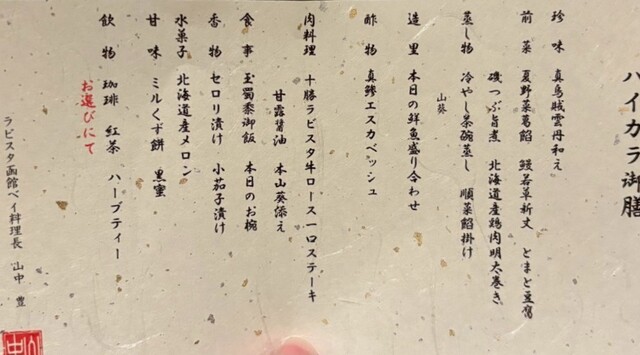 ハイカラ御膳
珍味 真烏賊雲丹和え
前菜 夏野菜葛餡 鰻若草新丈 とまと豆腐
磯つぶ旨煮 北海道産鶏肉明太巻き
蒸し物 冷やし茶碗蒸し 順菜餡掛け
山葵
造里 本日の鮮魚盛り合わせ
酢物 真鯵エスカベッシュ
肉料理 十勝ラビスタ牛ロース一口ステーキ
甘露醤油 本山葵添え
食事 玉蜀黍御飯 本日のお椀
香物 セロリ漬け 小茄子漬け
水菓子 北海道産メロン
甘味 ミルくず餅 黒蜜
飲物 珈琲 紅茶 ハーブティー
お選びにて
ラビスタ函館ベイ料理長 山中 豊